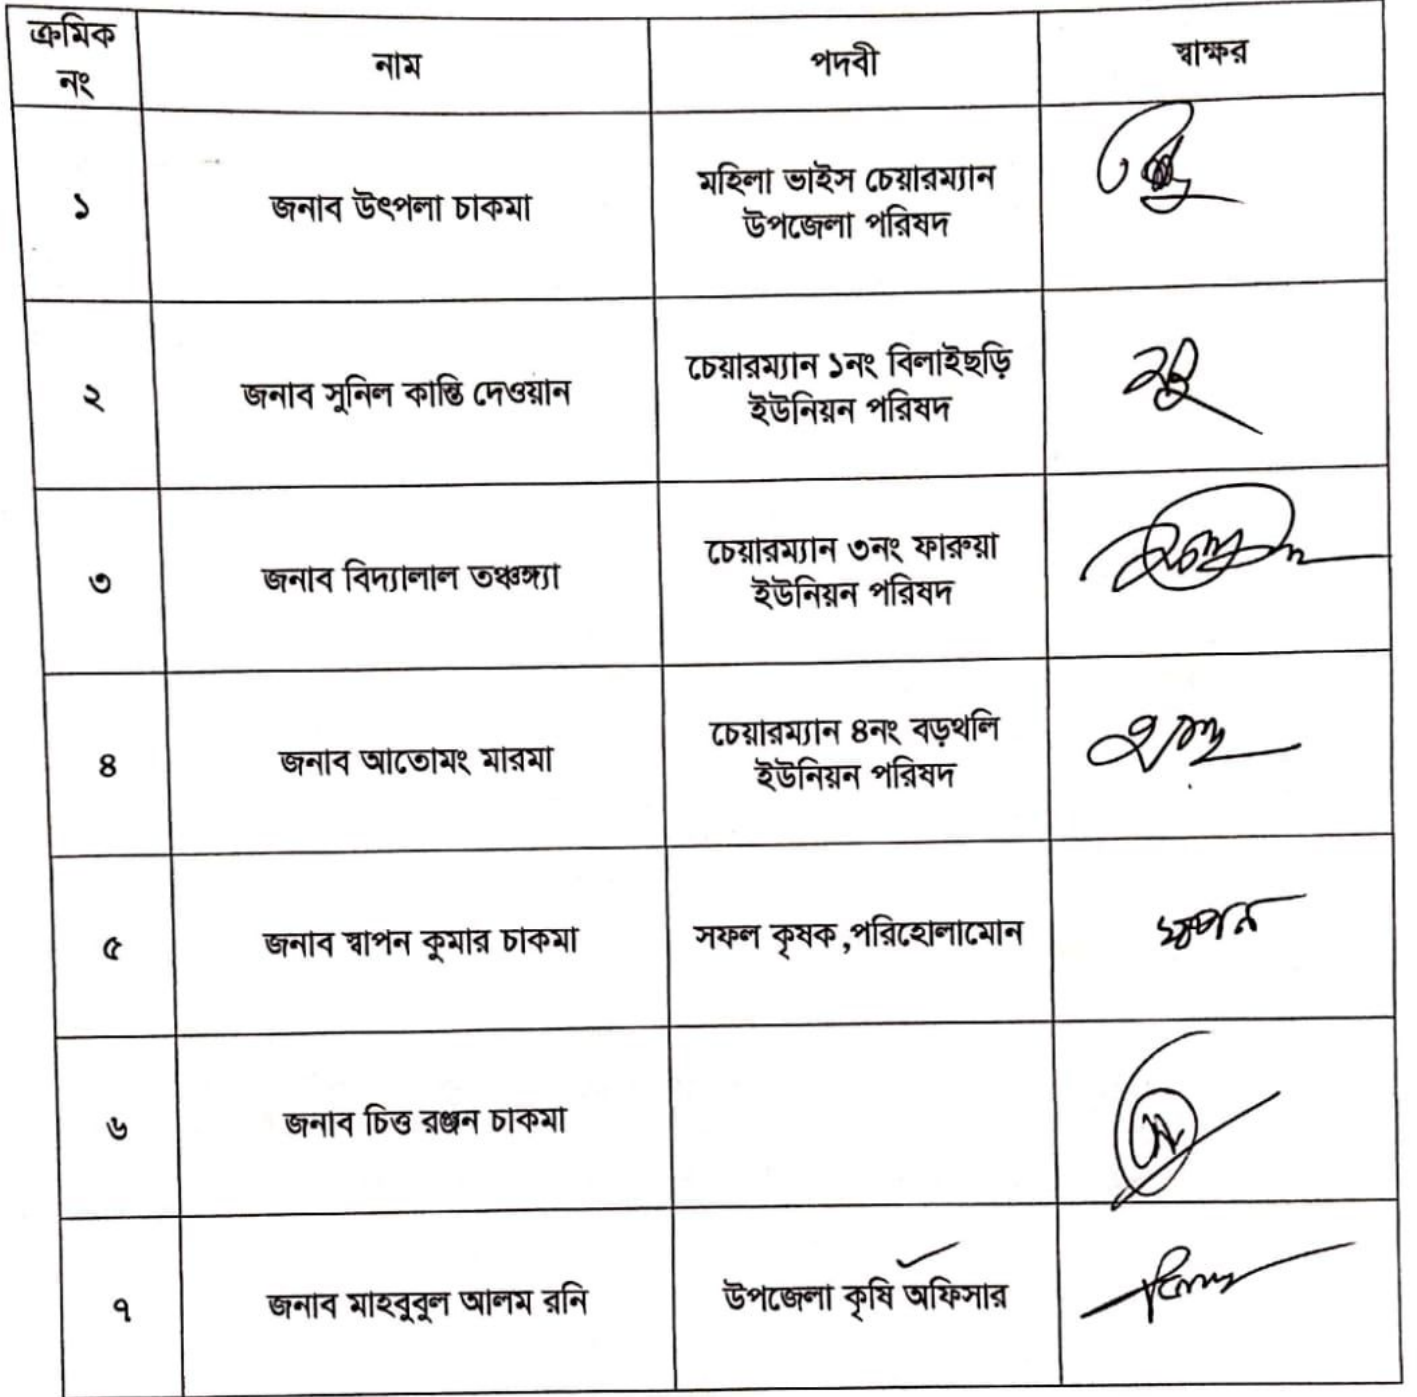 ক্রমিক নং
নাম
পদবী
স্বাক্ষর
১
জনাব উৎপলা চাকমা
মহিলা ভাইস চেয়ারম্যান
উপজেলা পরিষদ
২
জনাব সুনিল কান্তি দেওয়ান
চেয়ারম্যান ১নং বিলাইছড়ি
ইউনিয়ন পরিষদ
৩
জনাব বিদ্যালাল তঞ্চঙ্গ্যা
চেয়ারম্যান ৩নং ফারুয়া
ইউনিয়ন পরিষদ
৪
জনাব আতোমং মারমা
চেয়ারম্যান ৪নং বড়থলি
ইউনিয়ন পরিষদ
৫
জনাব স্বাপন কুমার চাকমা
সফল কৃষক,পরিহোলামোন
স্বপন
৬
জনাব চিত্ত রঞ্জন চাকমা
৭
জনাব মাহবুবুল আলম রনি
উপজেলা কৃষি অফিসার